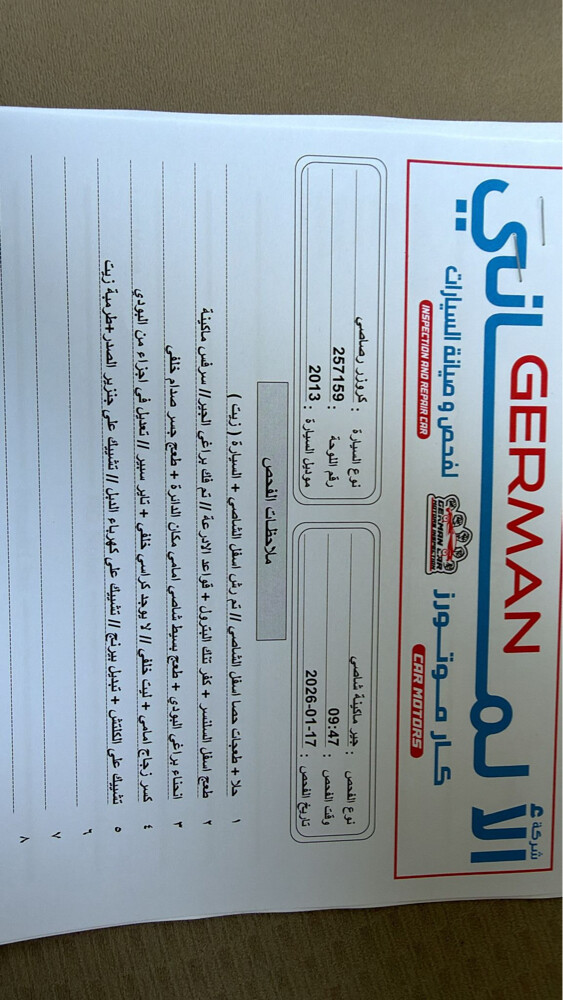 شركة
الألماني
GERMAN
كار موتورز
لفحص و صيانة السيارات
CAR MOTORS
GERMAN CAR
INSPECTION AND REPAIR CAR
تاريخ الفحص : 2026-01-17
وقت الفحص : 09:47
نوع الفحص : جير ماكينة شاصي
موديل السيارة : 2013
رقم اللوحة : 257159
نوع السيارة : كروزر رصاصي
ملاحظات الفحص
١ حلا + طعجات حصا اسفل الشاصي // تم رش اسفل الشاصي + السيارة ( زيت )
٢ طعج اسفل السلنسر + كفر تنك البترول + قواعد الادرعة // تم فك براغي الجير// سرفس ماكينة
٣ انحناء براغي البودي + طعج بسيط شاصي امامي مكان الدائرة + طعج جسر صدام خلفي
٤ كسر زجاج امامي + ليت خلفي // لا يوجد كراسي خلفي + تاير سبير // تعديل في اجزاء من البودي
٥ تشييك على الكلتش + تبديل بيرنج // تشييك على كهرباء الدبل // تشييك على جنزير الصدر+طرمبة زيت
٦
٧
٨